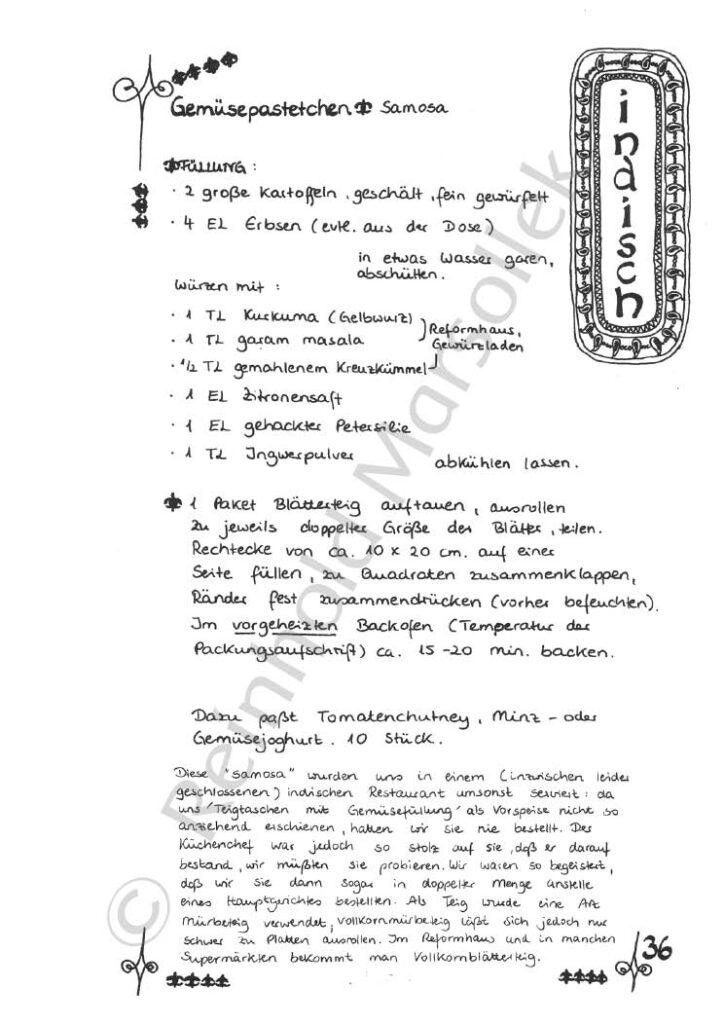 Gemüsepastetchen Samosa
indisch
FÜLLUNG :
· 2 große Kartoffeln , geschält , fein gewürfelt
· 4 EL Erbsen ( evtl. aus der Dose )
in etwas Wasser garen,
abschütten.
Würzen mit :
· 1 TL Kurkuma ( Gelbwurz )
· 1 TL garam masala
Reformhaus,
Gewürzladen
· 1/2 TL gemahlenem Kreuzkümmel
· 1 EL Zitronensaft
· 1 EL gehackter Petersilie
· 1 TL Ingwerpulver
abkühlen lassen.
1 Paket Blätterteig auftauen , ausrollen
zu jeweils doppelter Größe der Blätter , teilen.
Rechtecke von ca. 10 x 20 cm. auf einer
Seite füllen , zu Quadraten zusammenklappen,
Ränder fest zusammendrücken (vorher befeuchten).
Im vorgeheizten Backofen ( Temperatur der
Packungsaufschrift ) ca. 15 - 20 min. backen.
Dazu paßt Tomatenchutney , Minz - oder
Gemüsejoghurt . 10 Stück .
Diese "Samosa" wurden uns in einem ( inzwischen leider
geschlossenen ) indischen Restaurant umsonst serviert : da
uns 'Teigtaschen mit Gemüsefüllung' als Vorspeise nicht so
anziehend erschienen , hatten wir sie nie bestellt. Der
Küchenchef war jedoch so stolz auf sie , daß er darauf
bestand , wir müßten sie probieren. Wir waren so begeistert,
daß wir sie dann sogar in doppelter Menge anstelle
eines Hauptgerichtes bestellten. Als Teig wurde eine Art
Mürbeteig verwendet, Vollkornmürbeteig läßt sich jedoch nur
schwer zu Platten ausrollen. Im Reformhaus und in manchen
Supermärkten bekommt man Vollkornblätterteig.
36
© Reinhold Marsollek